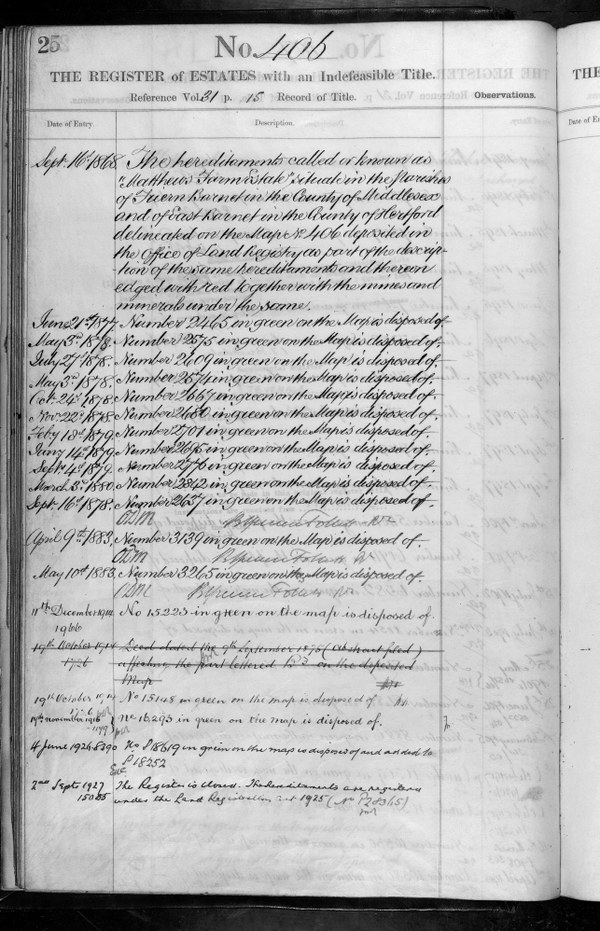 25
No. 406
THE REGISTER of ESTATES with an Indefeasible Title.
Reference Vol. 31 p. 15 Record of Title. Observations.
Date of Entry. Description.
Sept. 16th 1868. The hereditaments called or known as
"Matthews Farm Estate" situate in the Parishes
of Friern Barnet in the County of Middlesex
and of East Barnet in the County of Hertford
delineated on the Map No. 406 deposited in
the Office of Land Registry as part of the descrip-
tion of the same hereditaments and thereon
edged with red together with the mines and
minerals under the same.
June 21st 1877. Number 2465 in green on the Map is disposed of
May 3rd 1878. Number 2575 in green on the Map is disposed of.
July 27th 1878. Number 2609 in green on the Map is disposed of.
May 3rd 1878. Number 2574 in green on the Map is disposed of.
Oct. 24th 1878. Number 2667 in green on the Map is disposed of.
Novr. 22nd 1878. Number 2680 in green on the Map is disposed of.
Feby 18th 1879. Number 2701 in green on the Map is disposed of.
Jany 14th 1879. Number 2695 in green on the Map is disposed of.
Sept. 4th 1879. Number 2776 in green on the Map is disposed of.
March 3rd 1880. Number 2842 in green on the Map is disposed of.
Sept. 16th 1878. Number 2637 in green on the Map is disposed of.
ODM
April 9th 1883. Number 3139 in green on the Map is disposed of.
ODM
May 10th 1883. Number 3265 in green on the Map is disposed of.
ODM
11th December 1914 No 15223 in green on the map is disposed of
1966
19th October 1914 Deed dated the 9th September 1875 (Abstract filed)
1726 affecting the part lettered on the deposited
Map
19th October 1914 No 15148 in green on the map is disposed of
1726
19th November 1916 No 16293 in green on the map is disposed of.
1199
4 June 1926 8390 No P18619 in green on the map is disposed of and added to
P 18252
2nd Septr 1927 The Register is closed. The hereditaments are registered
15085 under the Land Registration Act 1925 (No P28365)
THE
Date of En